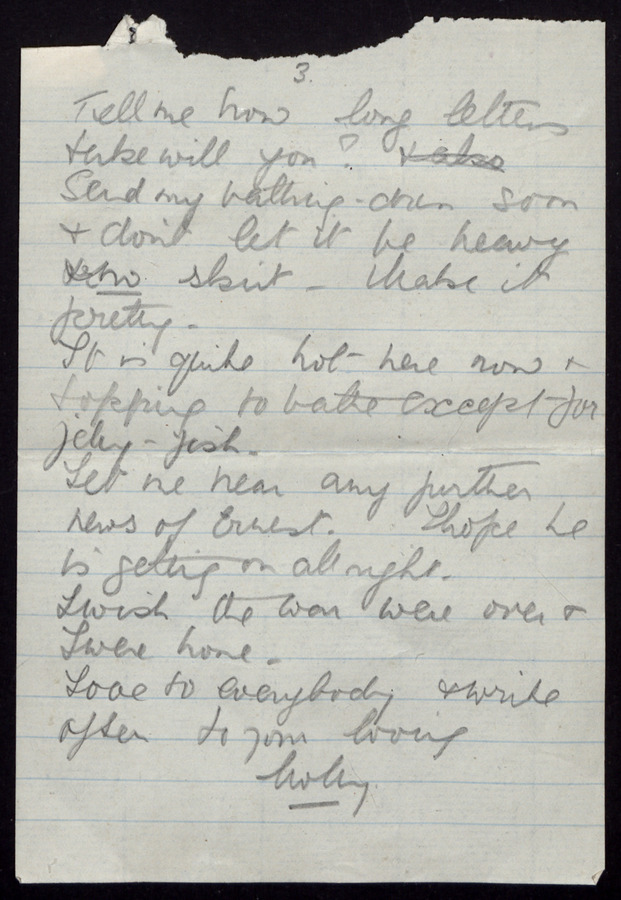 3.
Tell me how long letters
take will you? & also
Send my bathing-dress soon
& don't let it be heavy
& no skirt - Make it
pretty.
It is quite hot here now &
topping to bathe except for
jelly-fish.
Let me hear any further
news of Ernest. I hope he
is getting on all right.
I wish the war were over &
I were home.
Love to everybody & write
often to your loving
Molly